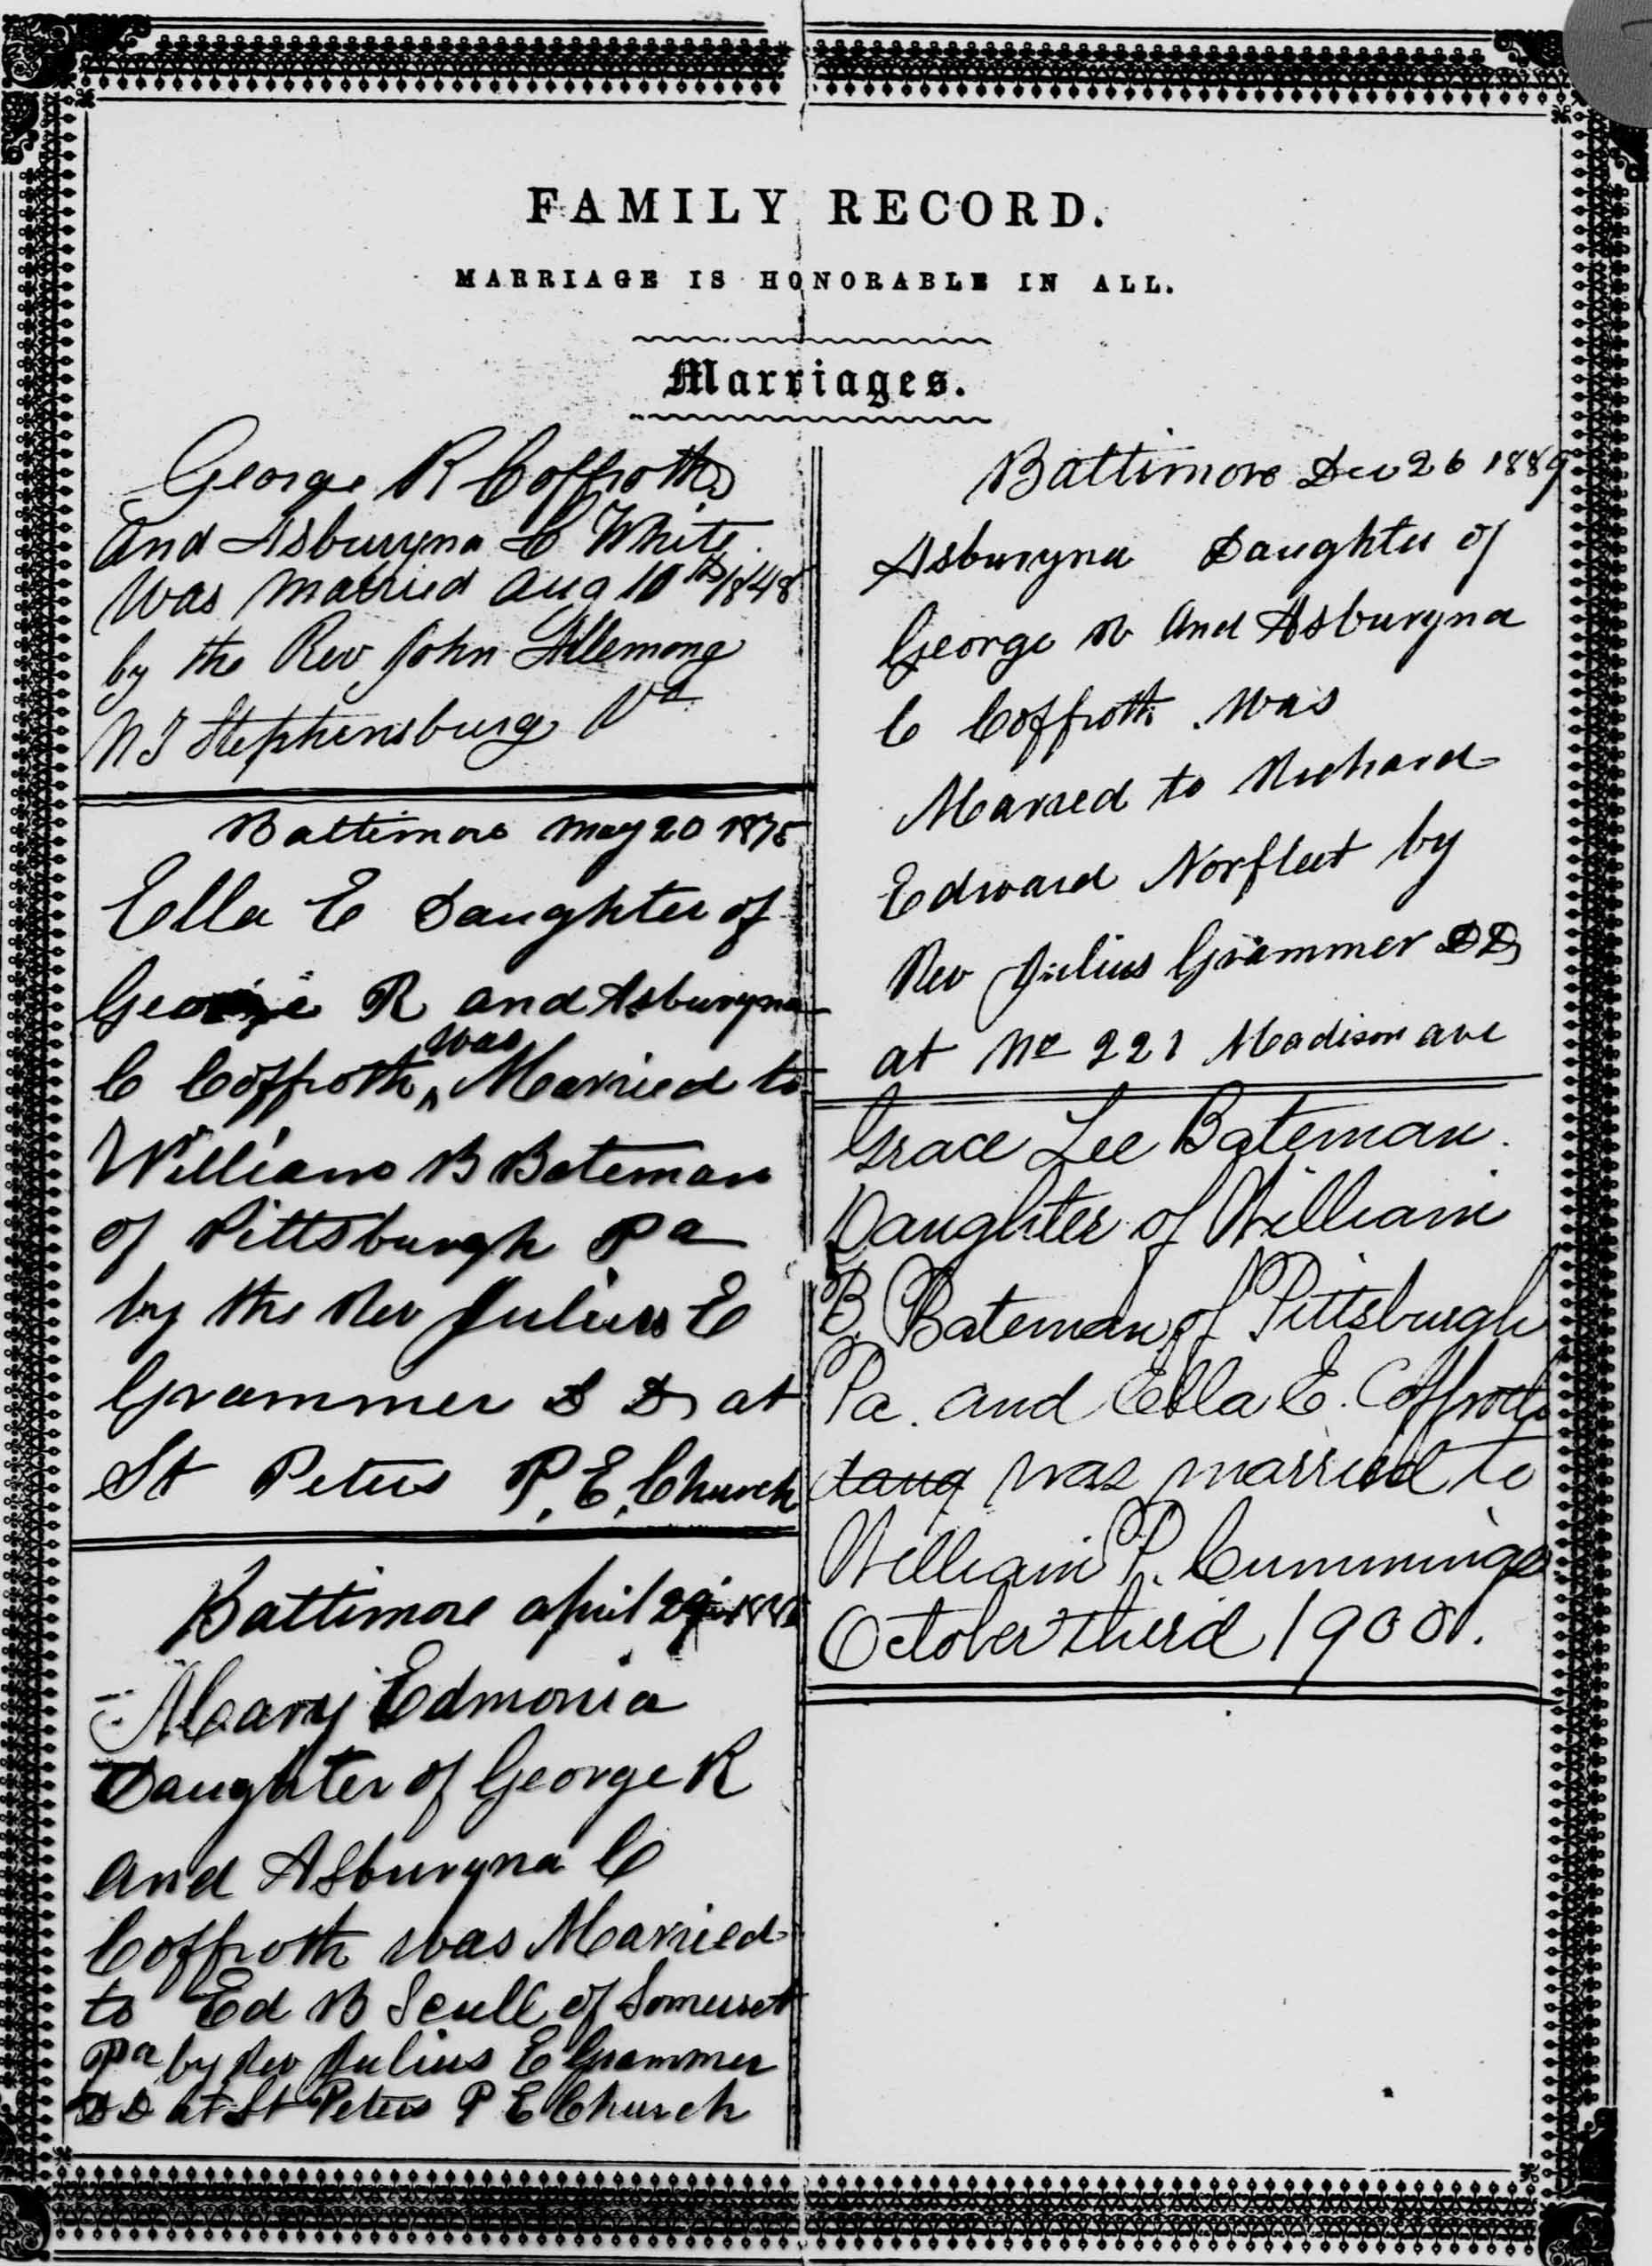 FAMILY RECORD.
MARRIAGE IS HONORABLE IN ALL.
Marriages.
George R Coffroth
And Asburyna C White
Was Married Aug 10th 1848
by the Rev John Allemong
Stephensburg Va
Baltimore May 20 1875
Ella E Daughter of
George R and Asburyna
C Coffroth was Married to
William B Bateman
of Pittsburgh Pa
by the Rev Julius E
Grammer D D at
St Peters P. E. Church
Baltimore April 29
Mary Edmonia
Daughter of George R
And Asburyna C
Coffroth was Married
to Ed B Scull of Somerset
Pa by Rev Julius E Grammer
D D at St Peters P E Church
Baltimore Dec 26 1889
Asburyna Daughter of
George R And Asburyna
C Coffroth Was
Marred to Richard
Edward Norfleet by
Rev Julius Grammer DD
at No 221 Madison ave
Grace Lee Bateman.
Daughter of William
B. Bateman of Pittsburgh
Pa. and Ella E. Coffroth
daug was married to
William P. Cummings
October third 1900.